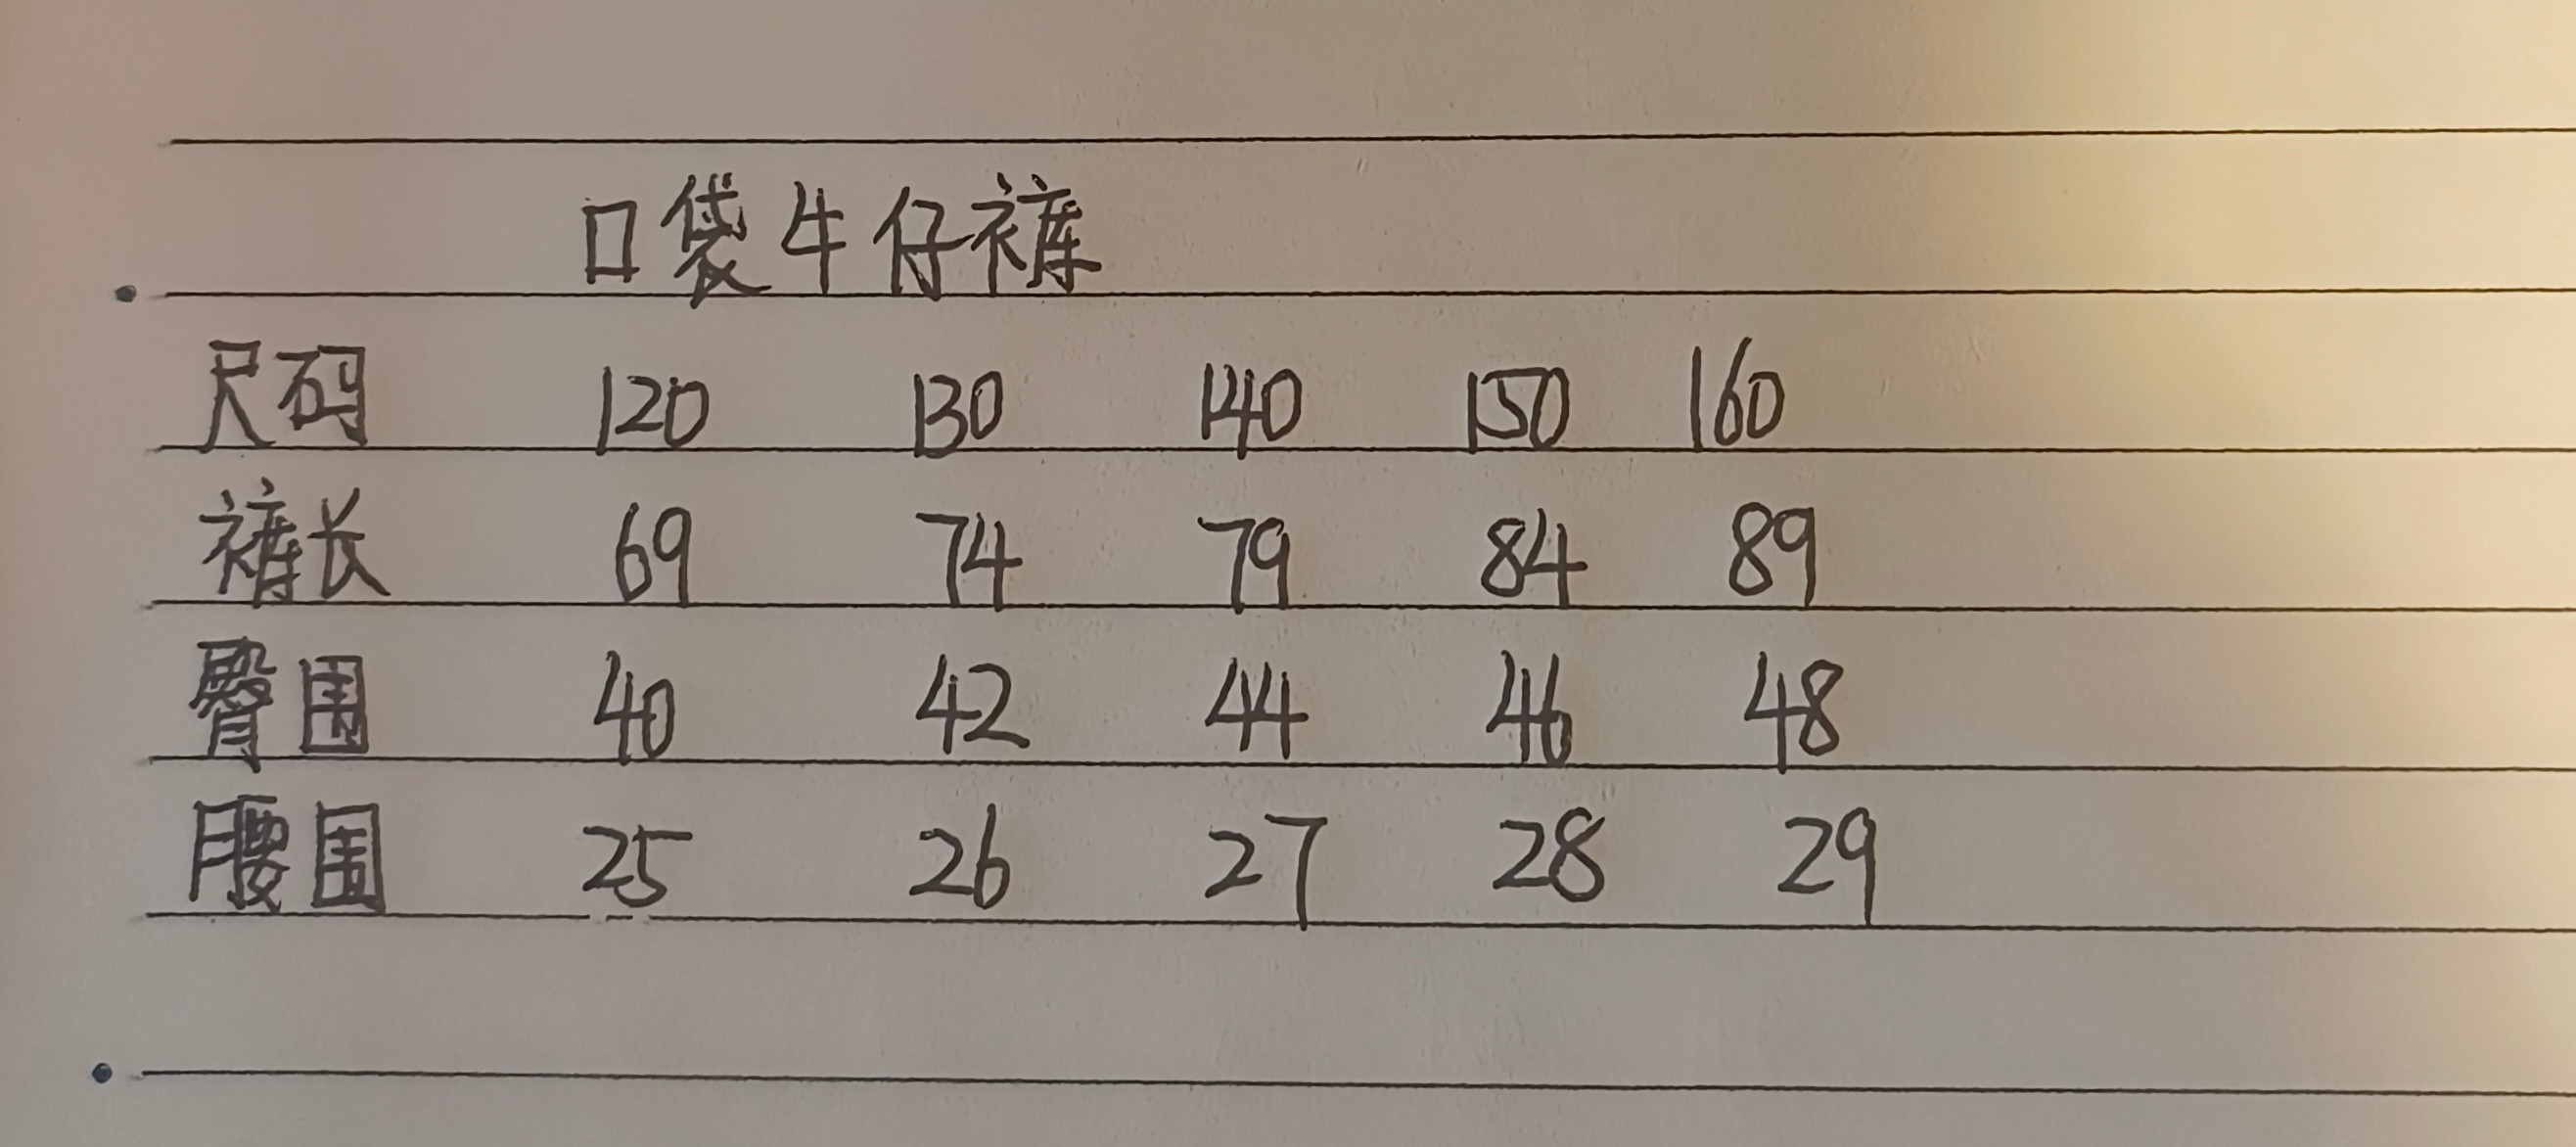 口袋牛仔裤
尺码 120 130 140 150 160
裤长 69 74 79 84 89
臀围 40 42 44 46 48
腰围 25 26 27 28 29